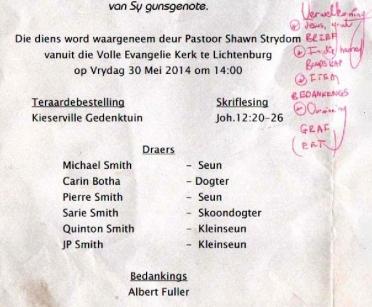 van Sy gunsgenote.
Die diens word waargeneem deur Pastoor Shawn Strydom
vanuit die Volle Evangelie Kerk te Lichtenburg
op Vrydag 30 Mei 2014 om 14:00
Teraardebestelling
Kieserville Gedenktuin
Skriflesing
Joh.12:20-26
Draers
Michael Smith - Seun
Carin Botha - Dogter
Pierre Smith - Seun
Sarie Smith - Skoondogter
Quinton Smith - Kleinseun
JP Smith - Kleinseun
Bedankings
Albert Fuller
Verwelkoming
BRIEF
BOODSKAP
ITEM
BEDANKINGS
GRAF